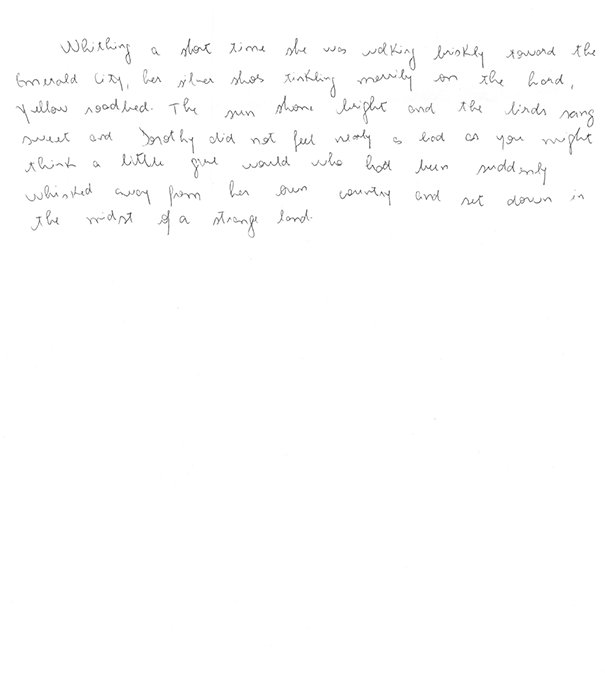 Whithing a short time she was walking briskly toward the
Emerald City, her silver shoes tinkling merrily on the hard,
yellow roadbed. The sun shone bright and the birds sang
sweet and Dorothy did not feel nearly as bad as you might
think a little girl would who had been suddenly
whisked away from her own country and set down in
the midst of a strange land.